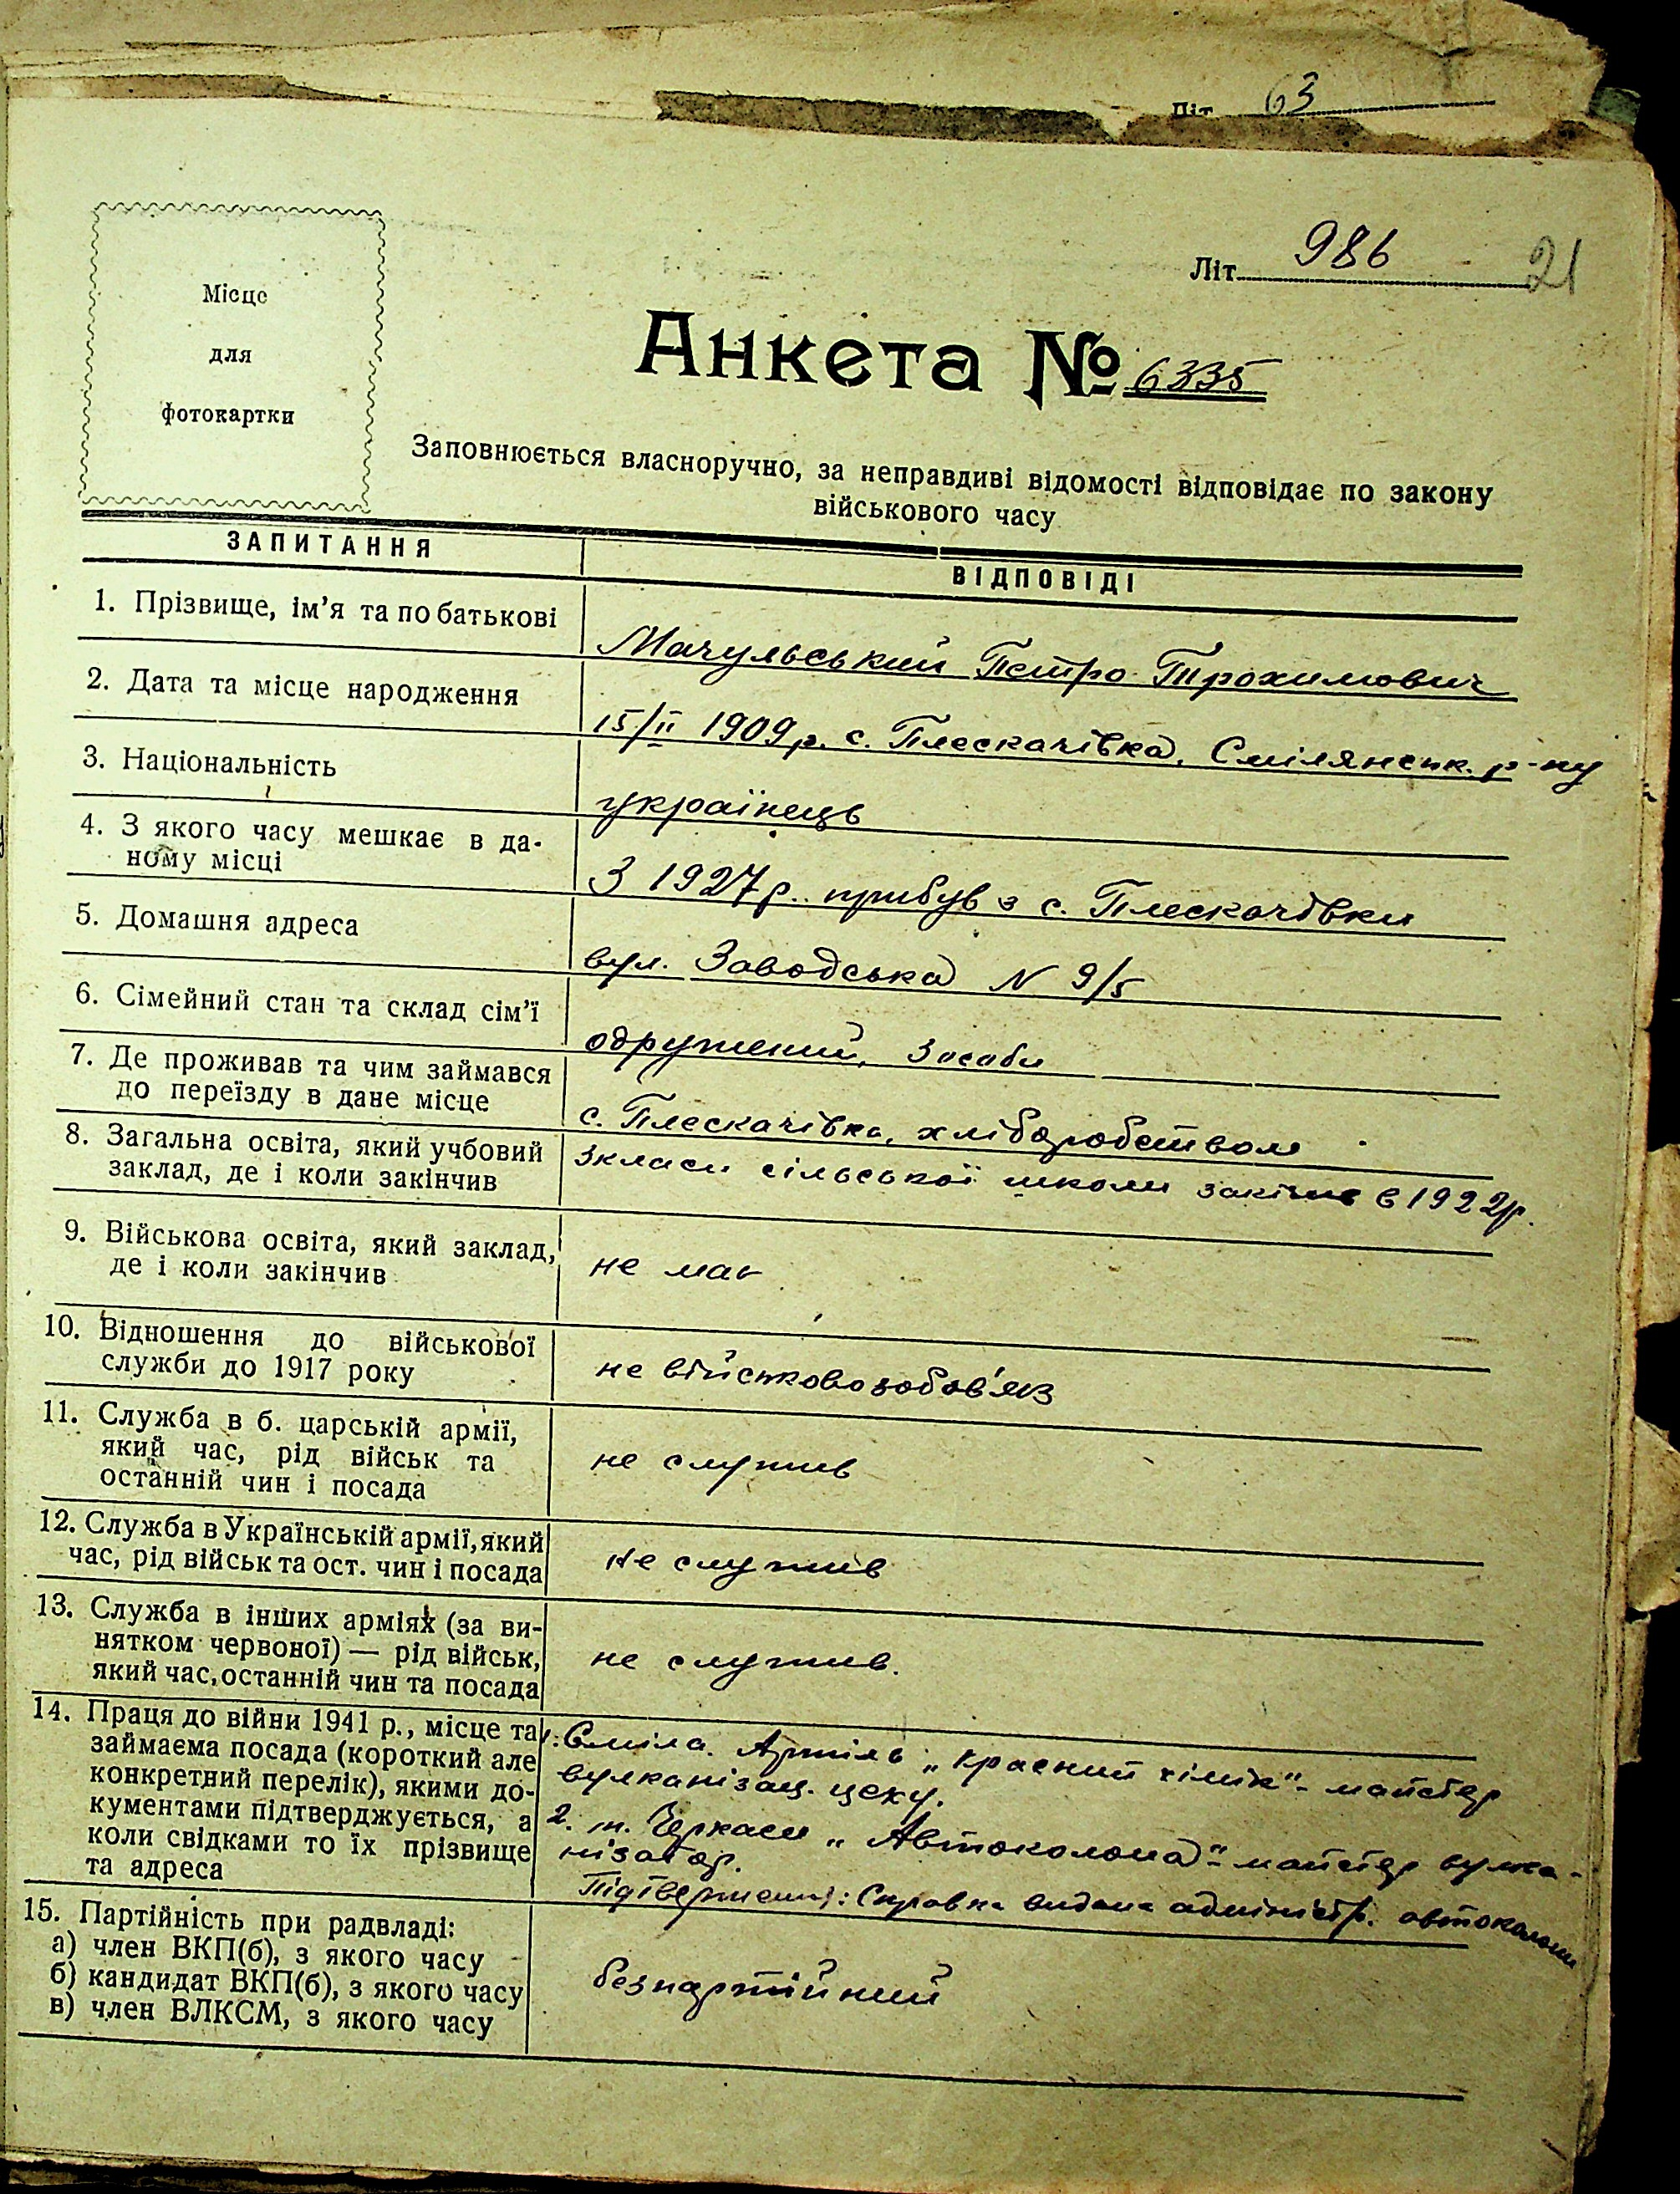 Літ 63
Літ. 986 21
Місце
для
фотокартки
Анкета № 6335
Заповнюється власноручно, за неправдиві відомості відповідає по закону
військового часу
ЗАПИТАННЯ
ВІДПОВІДІ
1. Прізвище, ім'я та по батькові
Мачульський Петро Трохимович
2. Дата та місце народження
15/II 1909 р. с. Плескачівка, Смілянськ. р-ну
3. Національність
українець
4. З якого часу мешкає в да-
ному місці
З 1927 р. прибув з с. Плескачівки
5. Домашня адреса
вул. Заводська N 9/5
6. Сімейний стан та склад сім'ї
одружений, 3 особи
7. Де проживав та чим займався
до переїзду в дане місце
с. Плескачівка, хліборобством
8. Загальна освіта, який учбовий
заклад, де і коли закінчив
3 класи сільської школи закінчив в 1922 р.
9. Військова освіта, який заклад,
де і коли закінчив
не має
10. Відношення до військової
служби до 1917 року
не військовозобов'яз
11. Служба в б. царській армії,
який час, рід військ та
останній чин і посада
не служив
12. Служба в Українській армії, який
час, рід військ та ост. чин і посада
не служив
13. Служба в інших арміях (за ви-
нятком червоної) — рід військ,
який час, останній чин та посада
не служив.
14. Праця до війни 1941 р., місце та
займаєма посада (короткий але
конкретний перелік), якими до-
кументами підтверджується, а
коли свідками то їх прізвище
та адреса
1. Сміла. Артіль „Красний хімік" - майстер
вулканізац. цеху.
2. м. Черкаси „Автоколона" - майстер вулка-
нізатор.
Підтвержени: Справка видана адміністр. автоколони
15. Партійність при радвладі:
а) член ВКП(б), з якого часу
б) кандидат ВКП(б), з якого часу
в) член ВЛКСМ, з якого часу
безпартійний